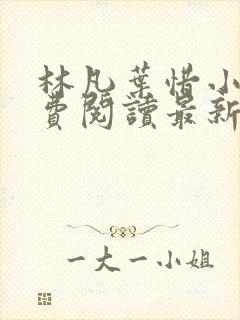 林凡葉惜小
費閱讀最新
一大一小姐